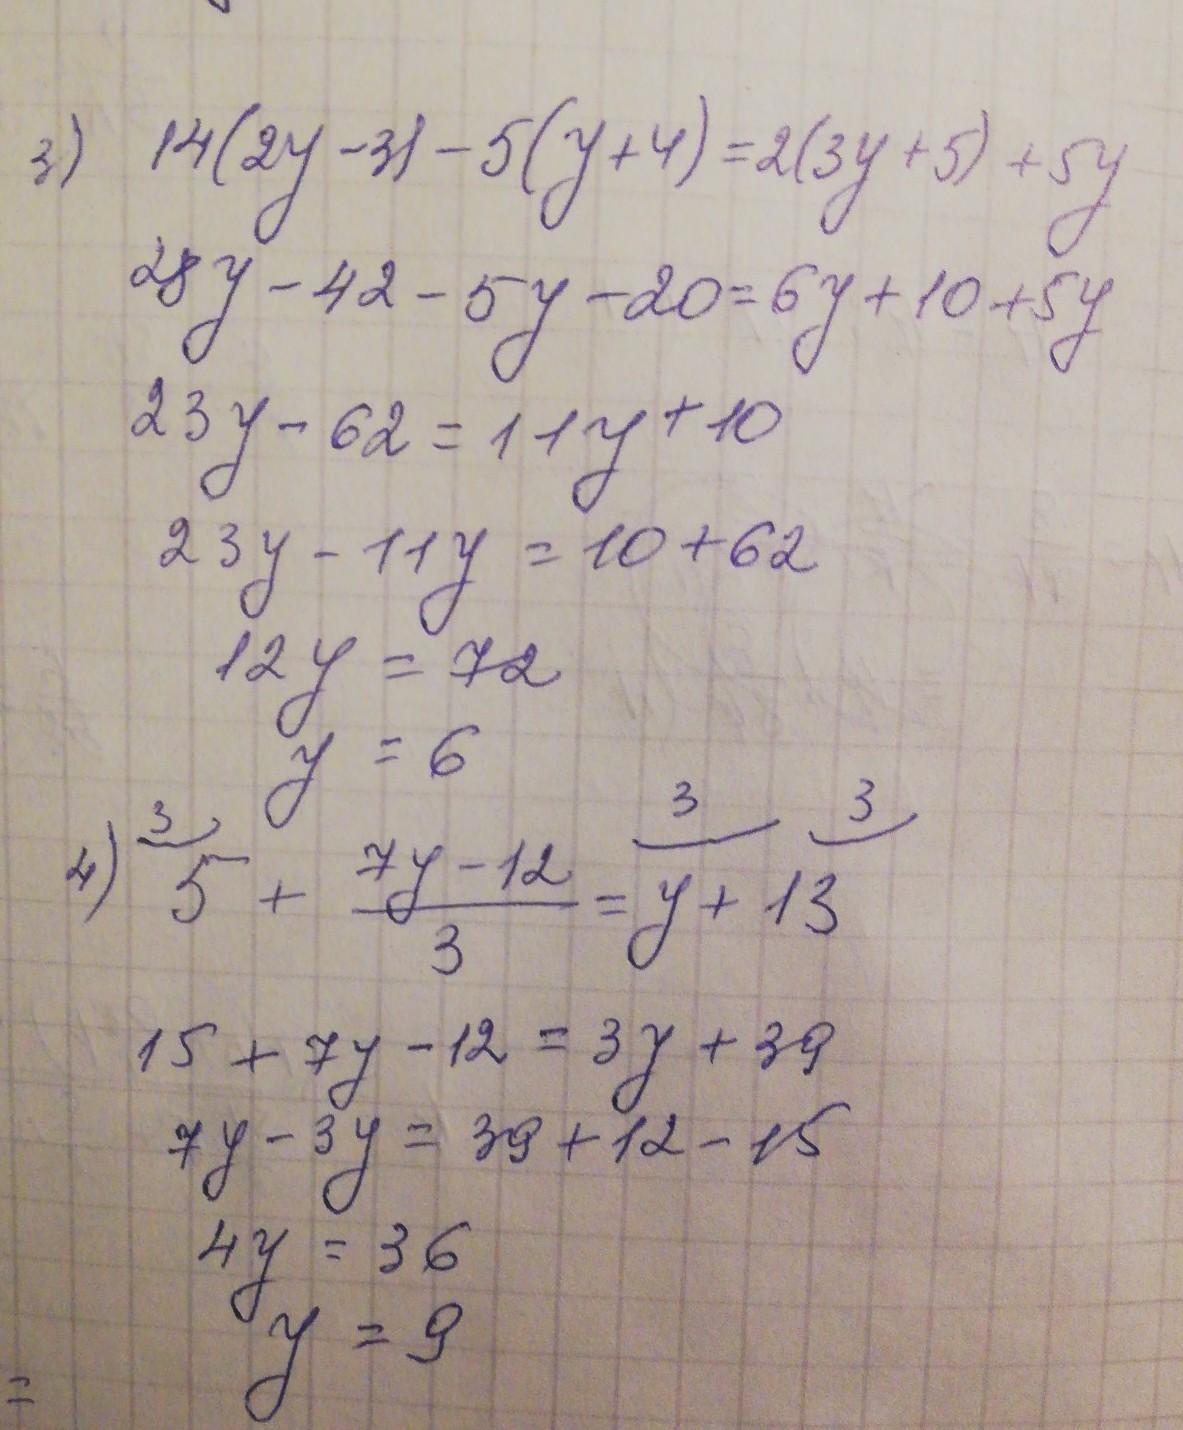 3) 14(2y-3)-5(y+4)=2(3y+5)+5y
28y-42-5y-20=6y+10+5y
23y-62=11y+10
23y-11y=10+62
12y=72
y=6
3 3 3
4) 5+\frac{7y-12}{3}=y+13
15+7y-12=3y+39
7y-3y=39+12-15
4y=36
y=9
=